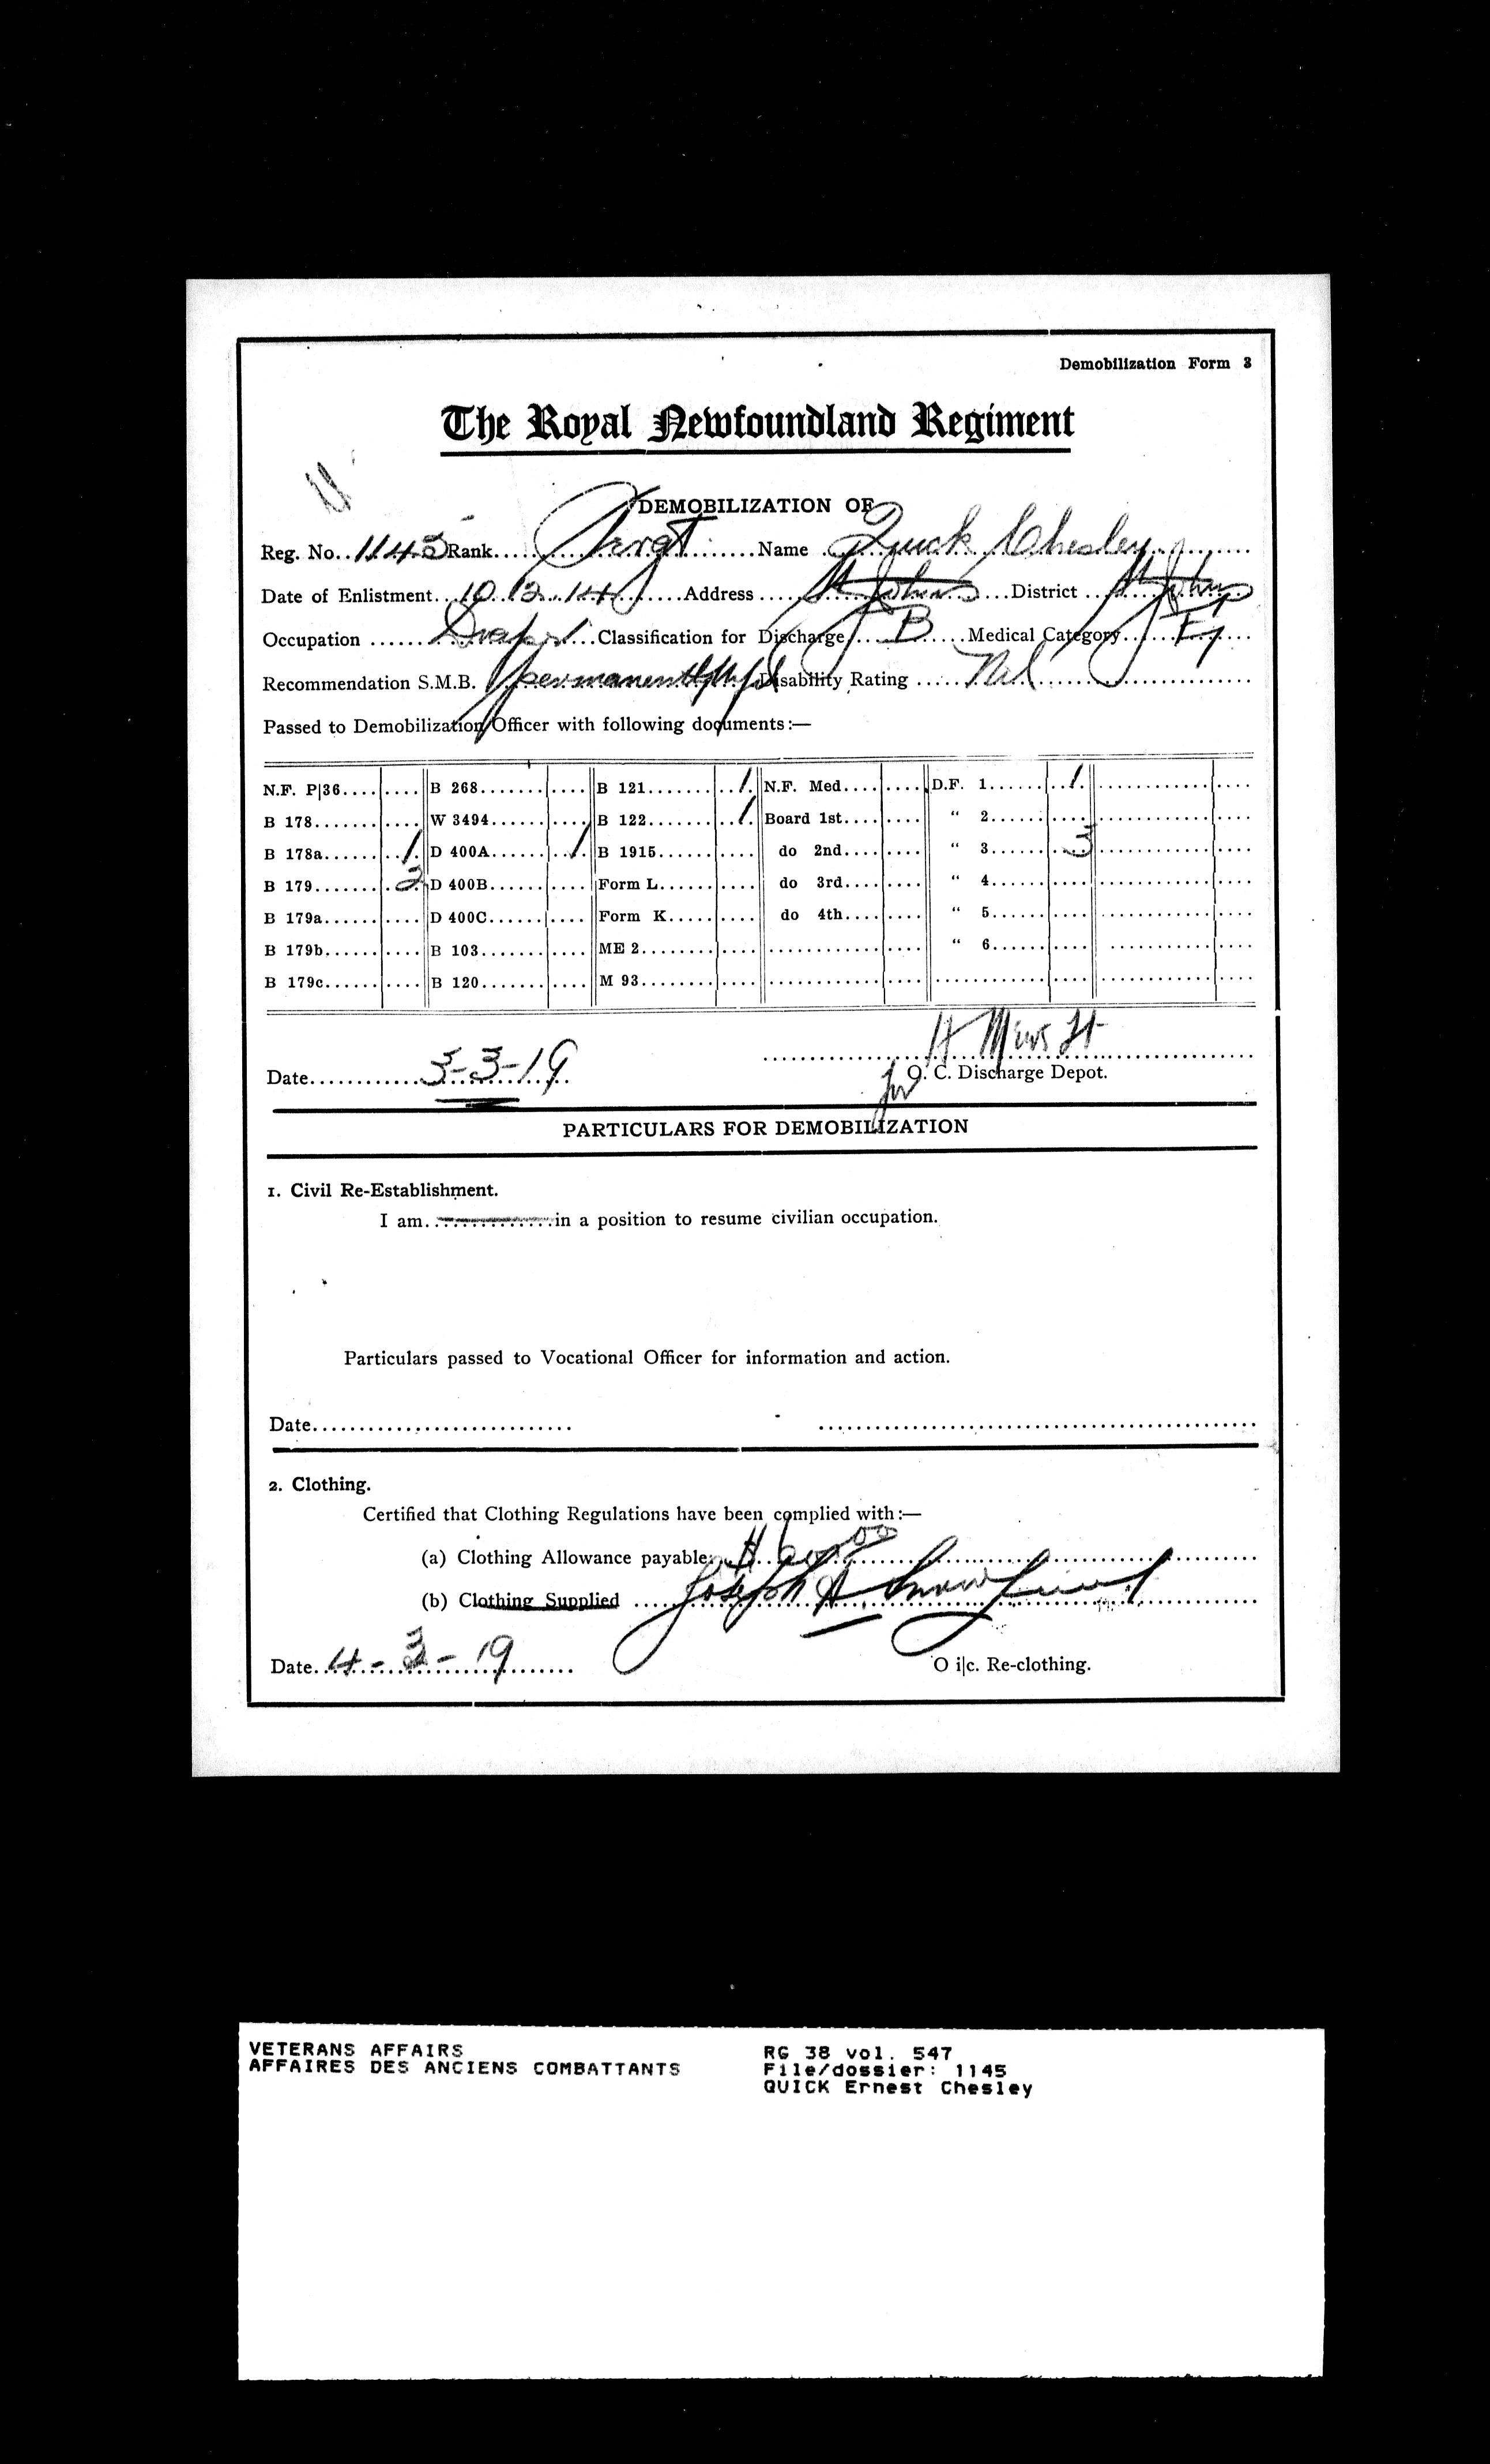 Demobilization Form 3
The Royal Newfoundland Regiment
DEMOBILIZATION OF
Reg. No. 1145 Rank Sergt Name Quick Chesley
Date of Enlistment 10.12.14 Address St Johns District St Johns
Occupation Draper Classification for Discharge B Medical Category E
Recommendation S.M.B. permanently Disability Rating Nil
Passed to Demobilization Officer with following documents:—
N.F. P|36 B 268 B 121 1 N.F. Med. D.F. 1 1
B 178 W 3494 B 122 1 Board 1st " 2
B 178a 1 D 400A 1 B 1915 do 2nd " 3 3
B 179 2 D 400B Form L do 3rd " 4
B 179a D 400C Form K do 4th " 5
B 179b B 103 ME 2 " 6
B 179c B 120 M 93
H Mews Lt
Date 3-3-19 for O. C. Discharge Depot.
PARTICULARS FOR DEMOBILIZATION
1. Civil Re-Establishment.
I am in a position to resume civilian occupation.
Particulars passed to Vocational Officer for information and action.
Date
2. Clothing.
Certified that Clothing Regulations have been complied with:—
(a) Clothing Allowance payable $60.00
(b) Clothing Supplied Joseph A Snow Lieut
Date 4-3-19 O i|c. Re-clothing.
VETERANS AFFAIRS RG 38 vol. 547
AFFAIRES DES ANCIENS COMBATTANTS File/dossier: 1145
QUICK Ernest Chesley